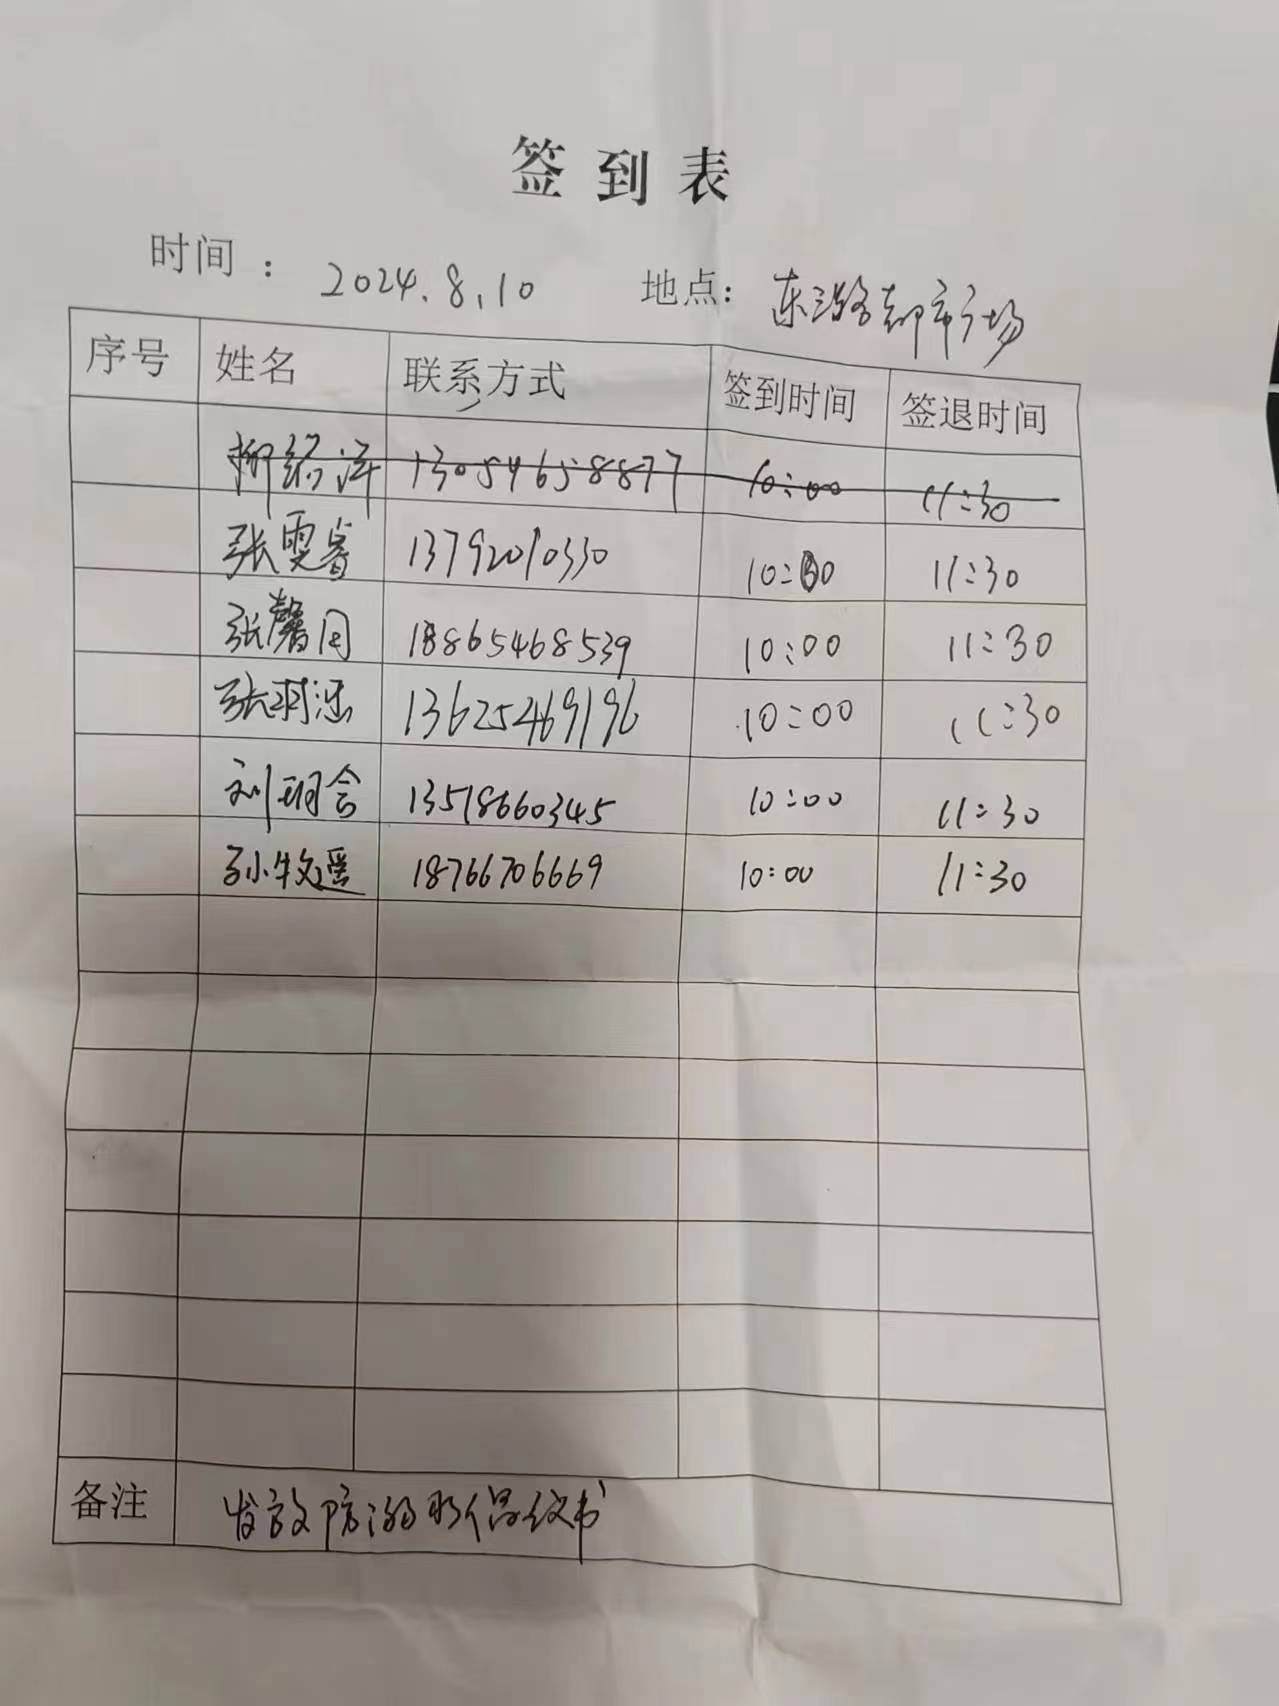 签到表
时间：2024.8.10 地点：东潞都市广场
序号 姓名 联系方式 签到时间 签退时间
13054658877 10:00 11:30
张雯睿 13792010330 10:00 11:30
张馨月 18865468539 10:00 11:30
张羽涵 13625469196 10:00 11:30
刘玥含 13518660345 10:00 11:30
孙牧遥 18766706669 10:00 11:30
备注 发放防溺水倡议书